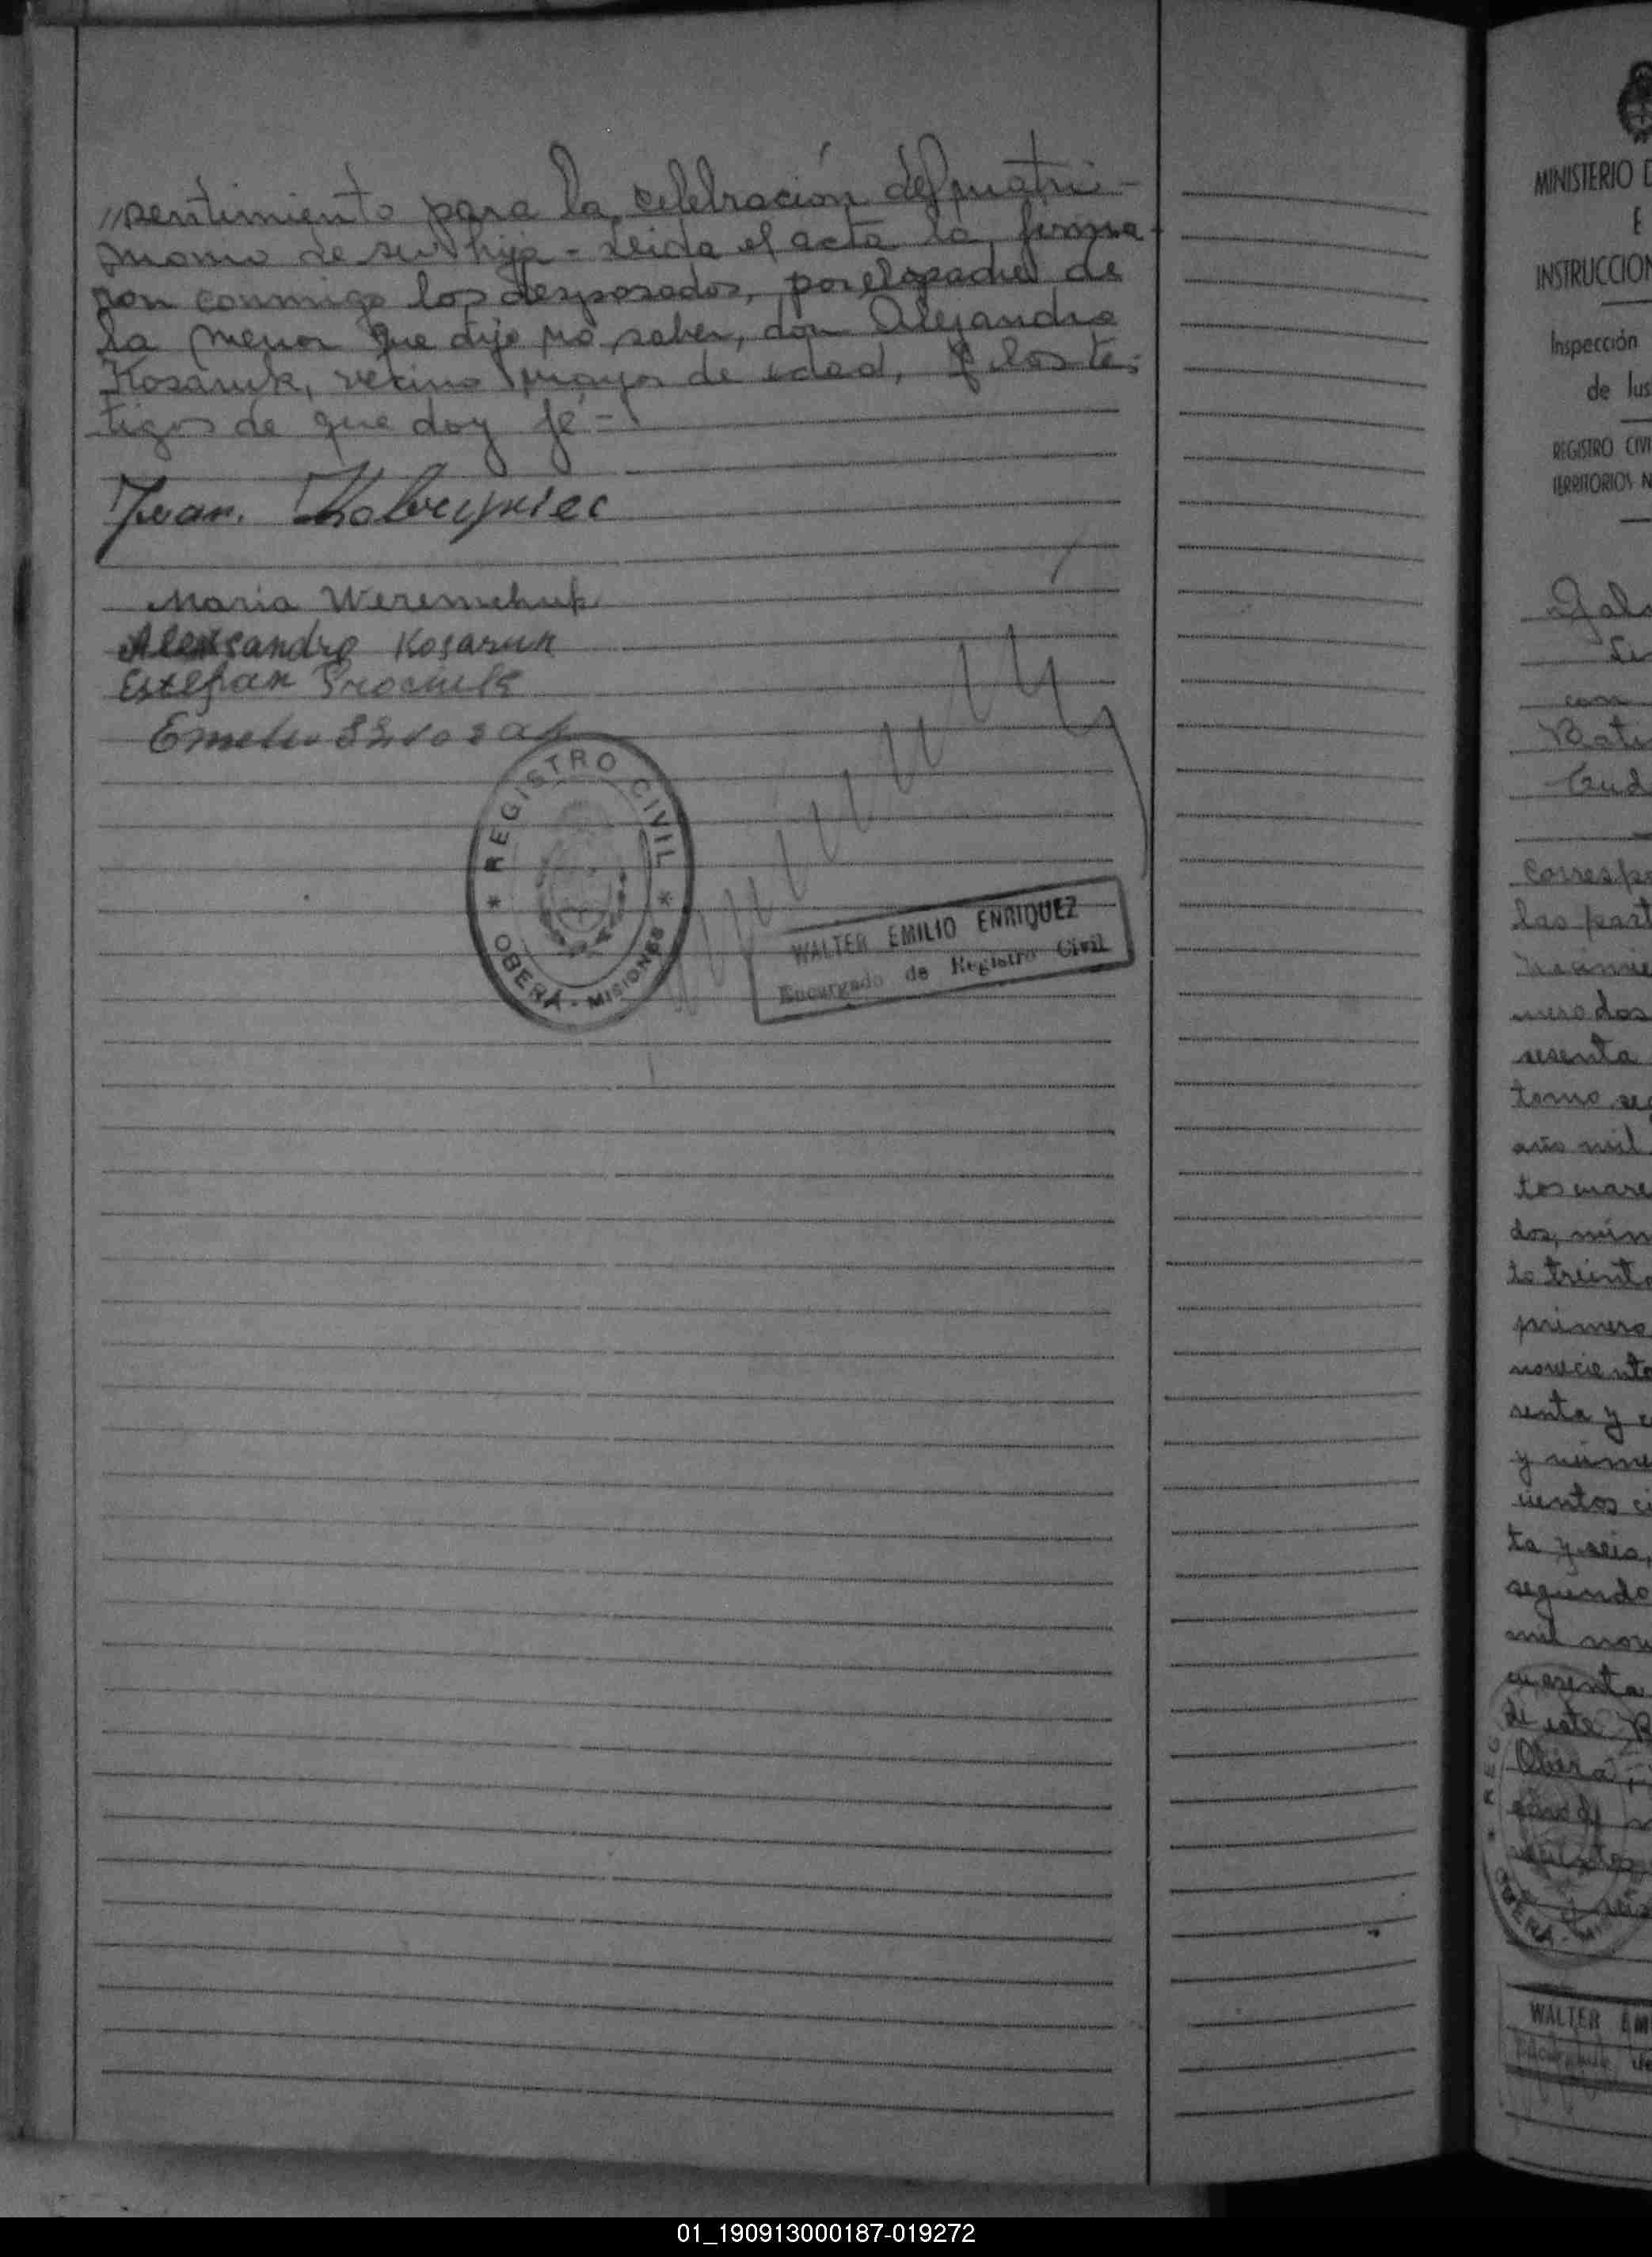 "sentimiento para la celebración del matri-
monio de su hija - Leida el acta la firma-
ron conmigo los desposados, por el padre de
la menor que dijo no saber, don Alejandro
Kosaruk, vecino mayor de edad, y los tes-
tigos de que doy fé -
Juan.
Maria Weremchuk
Aleksandro Kosaruk
Estefan Prociuk
REGISTRO CIVIL
* OBERÁ - MISIONES *
WALTER EMILIO ENRIQUEZ
Encargado de Registro Civil
MINISTERIO D
E
INSTRUCCION
Inspección
de Jus
REGISTRO CIVI
TERRITORIOS N
con
Corresp
las part
mero dos
sesenta
tomo se
año mil
tos cuare
dos, núm
to treint
primero
noveciento
renta y c
y núme
cientos ci
ta y seis,
segundo
mil nov
cuarenta
de este R
Oberá,
OBERÁ - MIS
WALTER EM
01_190913000187-019272